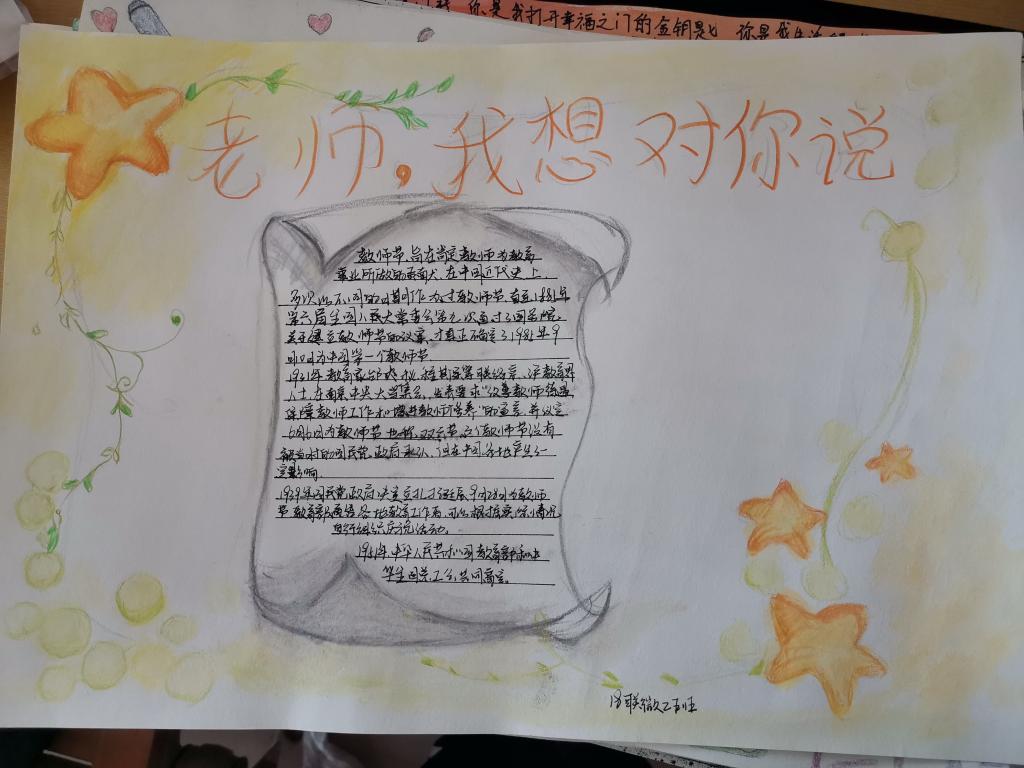 你是我打开幸福之门的金钥匙 你是我
老师，我想对你说
教师节，旨在肯定教师为教育
事业所做的贡献。在中国近代史上
多次以不同的日期作为过教师节。直至1981年
第六届全国人民大常委会第九次会议通过了国务院
关于建立教师节的议案，才真正确定了1981年9
月10日为中国第一个教师节
1931年教育家
人士，在南京中央大学集会，发表要求"改善教师待遇
保障教师工作和增进教师修养"的宣言，并议定
6月6日为教师节也称双六节，这个教师节没有
被当时的国民党政府承认，但在中国各地产生了一
定影响
1939年国民党政府决定立孔子诞辰9月28日为教师
节，教育部通告各地教育工作者可以根据实际情况
自行组织庆祝活动。
1951年，中华人民共和国教育部和中
华全国总工会共同商定。